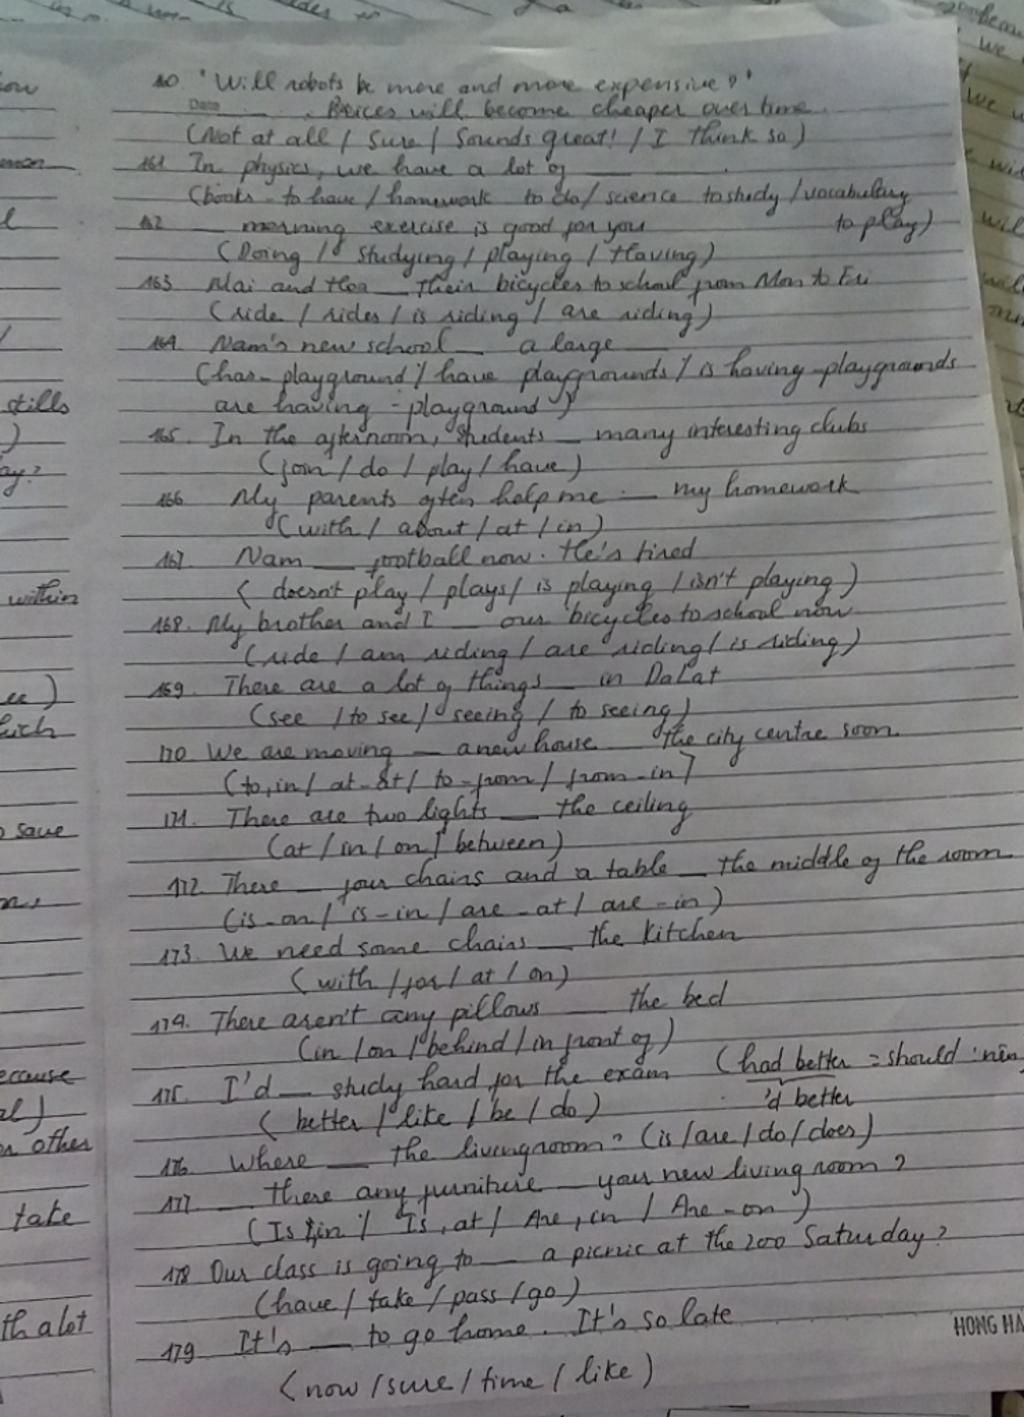 60. "Will robots be more and more expensive?"
Date ___. Prices will become cheaper over time.
(Not at all / Sure / Sounds great! / I think so)
161. In physics, we have a lot of ___ ___.
(books - to have / homework to do / science to study / vocabulary
to play)
162. ___ morning exercise is good for you
(Doing / studying / playing / Having)
163. Mai and Hoa ___ their bicycles to school from Mon to Fri
(ride / rides / is riding / are riding)
164. Nam's new school ___ a large ___
(has - playground / have playgrounds / is having - playgrounds
are having - playground)
165. In the afternoon, students ___ many interesting clubs
(join / do / play / have)
166. My parents often help me ___ my homework
(with / about / at / in)
167. Nam ___ football now. He's tired
(doesn't play / plays / is playing / isn't playing)
168. My brother and I ___ our bicycles to school now
(ride / am riding / are riding / is riding)
169. There are a lot of things ___ in DaLat
(see / to see / seeing / to seeing)
170. We are moving ___ a new house ___ the city centre soon
(to, in / at - at / to - from / from - in)
171. There are two lights ___ the ceiling
(at / in / on / between)
172. There ___ four chairs and a table ___ the middle of the room
(is - on / is - in / are - at / are - in)
173. We need some chairs ___ the kitchen
(with / for / at / on)
174. There aren't any pillows ___ the bed
(in / on / behind / in front of)
175. I'd ___ study hard for the exam (had better = should : nên
(better / like / be / do) 'd better
176. Where ___ the livingroom? (is / are / do / does)
177. ___ there any furniture ___ your new living room?
(Is, in / Is, at / Are, in / Are - on)
178 Our class is going to ___ a picnic at the zoo Saturday?
(have / take / pass / go)
179 It's ___ to go home. It's so late
HONG HA
(now / sure / time / like)
stills
ay?
within
o save
ecause
other
take
th a lot